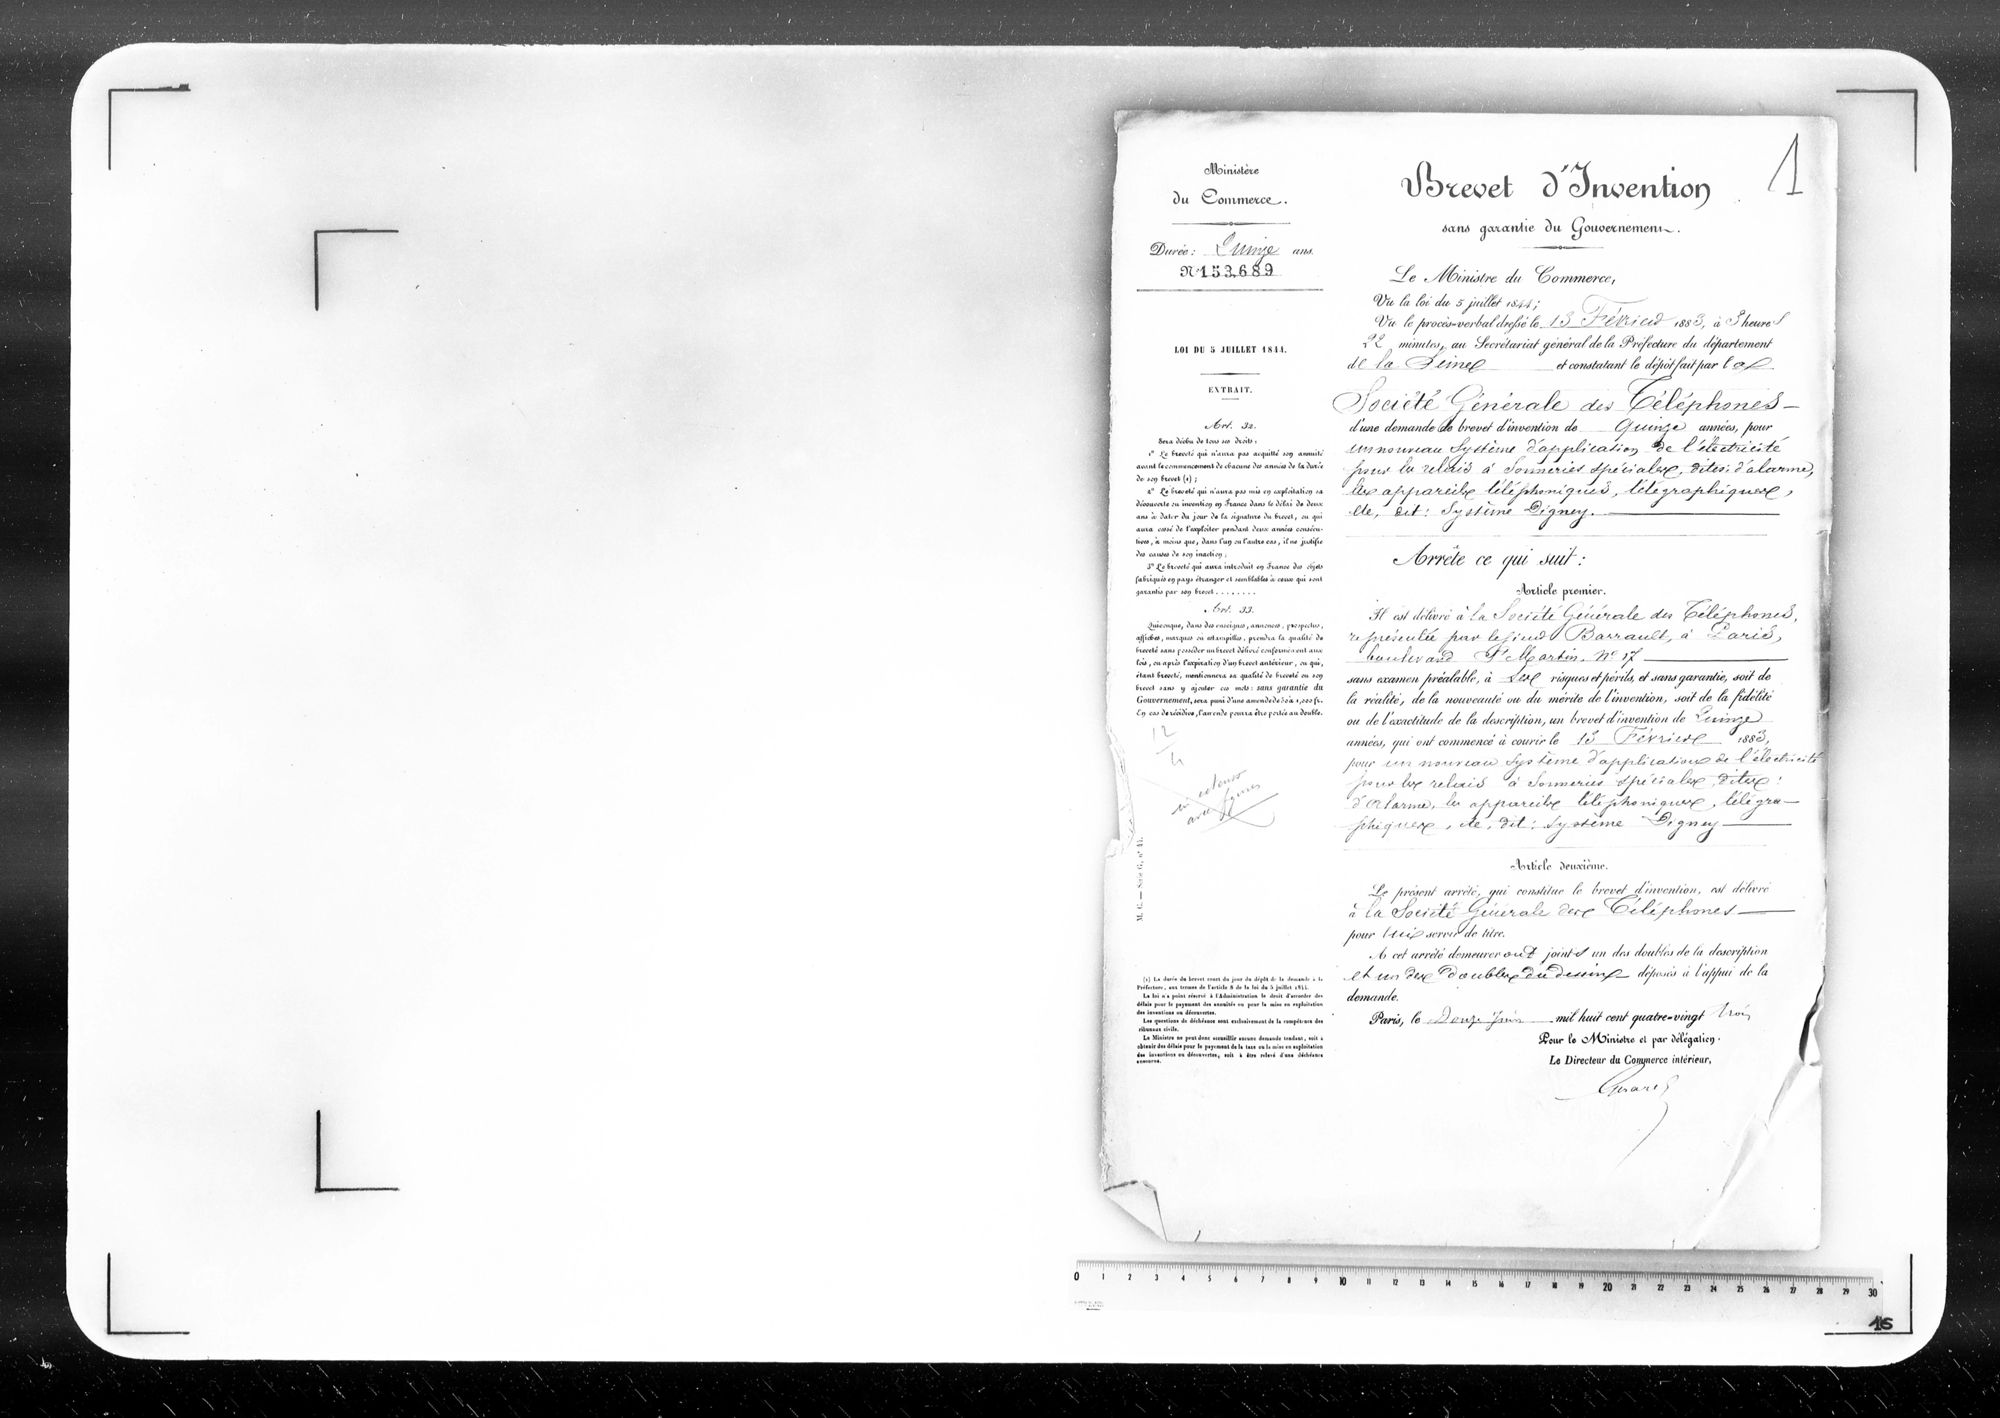 Ministère
du Commerce.
Durée: Quinze ans.
N° 153,689
LOI DU 5 JUILLET 1844.
EXTRAIT.
Art. 32.
Sera déchu de tous ses droits:
1° Le breveté qui n'aura pas acquitté son annuité
avant le commencement de chacune des années de la durée
de son brevet (1);
2° Le breveté qui n'aura pas mis en exploitation sa
découverte ou invention en France dans le délai de deux
ans à dater du jour de la signature du brevet, ou qui
aura cessé de l'exploiter pendant deux années consécu-
tives, à moins que, dans l'un ou l'autre cas, il ne justifie
des causes de son inaction;
3° Le breveté qui aura introduit en France des objets
fabriqués en pays étranger et semblables à ceux qui sont
garantis par son brevet........
Art. 33.
Quiconque, dans des enseignes, annonces, prospectus,
affiches, marques ou estampilles, prendra la qualité de
breveté sans posséder un brevet délivré conformément aux
lois, ou après l'expiration d'un brevet antérieur, ou qui,
étant breveté, mentionnera sa qualité de breveté ou son
brevet sans y ajouter ces mots: sans garantie du
Gouvernement, sera puni d'une amende de 50 à 1,000 fr.
En cas de récidive, l'amende pourra être portée au double.
12
in extenso
avec figures
M. C. — Série G, n° 47.
(1) La durée du brevet court du jour du dépôt de la demande à la
Préfecture, aux termes de l'article 8 de la loi du 5 juillet 1844.
La loi n'a point réservé à l'Administration le droit d'accorder des
délais pour le payement des annuités ou pour la mise en exploitation
des inventions ou découvertes.
Les questions de déchéance sont exclusivement de la compétence des
tribunaux civils.
Le Ministre ne peut donc accueillir aucune demande tendant, soit à
obtenir des délais pour le payement de la taxe ou la mise en exploitation
des inventions ou découvertes, soit à être relevé d'une déchéance
encourue.
1
Brevet d'Invention
sans garantie du Gouvernement.
Le Ministre du Commerce,
Vu la loi du 5 juillet 1844;
Vu le procès-verbal dressé le 13 Février 1883, à 3 heures
22 minutes, au Secrétariat général de la Préfecture du département
de la Seine et constatant le dépôt fait par la
Société Générale des Téléphones
d'une demande de brevet d'invention de Quinze années, pour
un nouveau système d'application de l'électricité
pour les relais à sonneries spéciales, dites: d'alarme,
les appareils téléphoniques, télégraphiques,
etc, dit: Système Digney.
Arrête ce qui suit:
Article premier.
Il est délivré à la Société Générale des Téléphones,
représentée par le sieur Barrault, à Paris,
boulevard St Martin, N° 17
sans examen préalable, à ses risques et périls, et sans garantie, soit de
la réalité, de la nouveauté ou du mérite de l'invention, soit de la fidélité
ou de l'exactitude de la description, un brevet d'invention de Quinze
années, qui ont commencé à courir le 13 Février 1883,
pour un nouveau système d'application de l'électricité
pour les relais à sonneries spéciales, dites:
d'alarme, les appareils téléphoniques, télégra-
phiques, etc, dit: Système Digney
Article deuxième.
Le présent arrêté, qui constitue le brevet d'invention, est délivré
à la Société Générale des Téléphones
pour lui servir de titre.
A cet arrêté demeureront joints un des doubles de la description
et un des doubles du dessin déposés à l'appui de la
demande.
Paris, le Douze Juin mil huit cent quatre-vingt trois
Pour le Ministre et par délégation.
Le Directeur du Commerce intérieur,
Girard
0 1 2 3 4 5 6 7 8 9 10 11 12 13 14 15 16 17 18 19 20 21 22 23 24 25 26 27 28 29 30
16